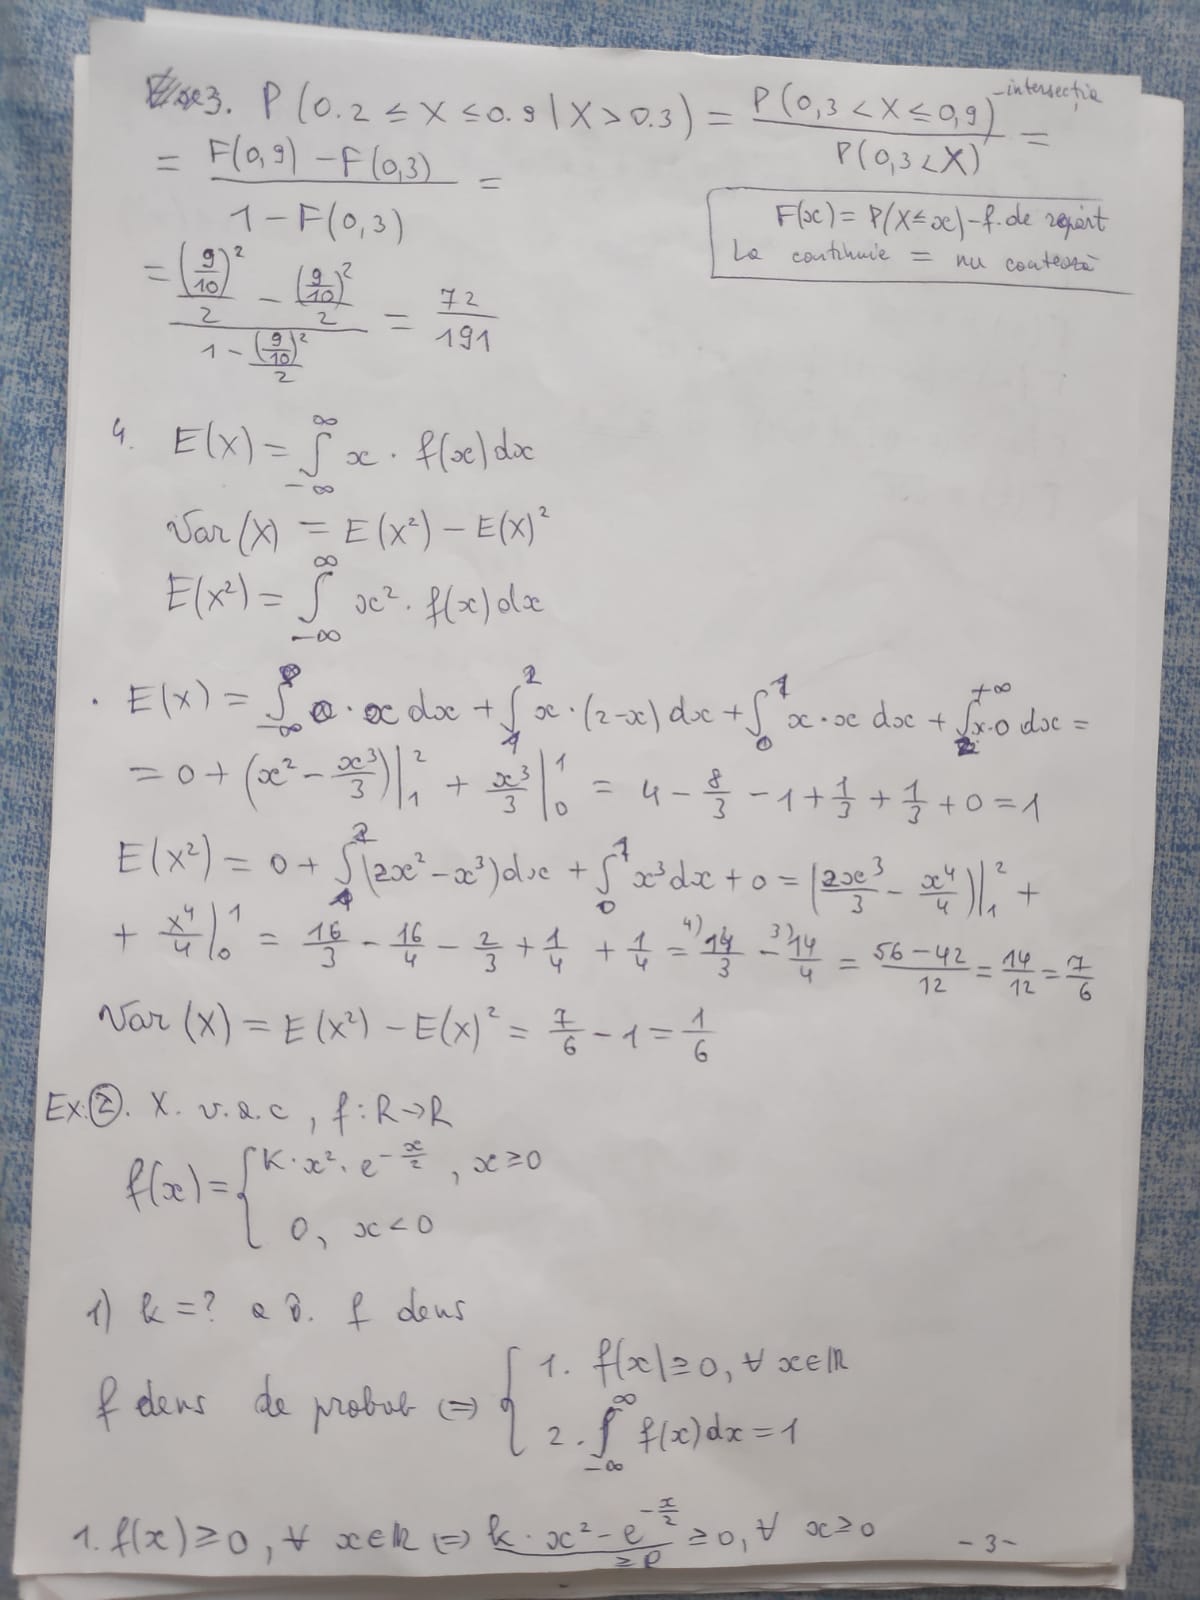 3. P(0.2 ≤ X ≤ 0.9 | X > 0.3) = P(0,3 < X ≤ 0,9) / P(0,3 < X) =
- intersecția
= (F(0,9) - F(0,3)) / (1 - F(0,3)) =
F(x) = P(X ≤ x) - f. de repart
La continuie = nu contează
= ((9/10)²/2 - (9/10)²/2) / (1 - (9/10)²/2) = 72/191
4. E(X) = ∫_{-∞}^{∞} x · f(x) dx
Var(X) = E(X²) - E(X)²
E(X²) = ∫_{-∞}^{∞} x² · f(x) dx
· E(X) = ∫_{-∞}^{0} 0 · x dx + ∫_1^2 x · (2-x) dx + ∫_0^1 x · x dx + ∫_2^{+∞} x·0 dx =
= 0 + (x² - x³/3)|_1^2 + x³/3|_0^1 = 4 - 8/3 - 1 + 1/3 + 1/3 + 0 = 1
E(X²) = 0 + ∫_1^2 (2x² - x³) dx + ∫_0^1 x³ dx + 0 = (2x³/3 - x⁴/4)|_1^2 +
+ x⁴/4|_0^1 = 16/3 - 16/4 - 2/3 + 1/4 + 1/4 = ⁴⁾14/3 - ³⁾14/4 = (56-42)/12 = 14/12 = 7/6
Var(X) = E(X²) - E(X)² = 7/6 - 1 = 1/6
Ex: ②. X. v.a.c, f: R→R
f(x) = { K · x² · e^{-x/2}, x ≥ 0
0, x < 0
1) k = ? a î. f dens
f dens de probab ⇔ { 1. f(x) ≥ 0, ∀ x∈ℝ
2. ∫_{-∞}^{∞} f(x) dx = 1
1. f(x) ≥ 0, ∀ x∈ℝ ⇔ k · x² - e^{-x/2} ≥ 0, ∀ x ≥ 0
- 3 -